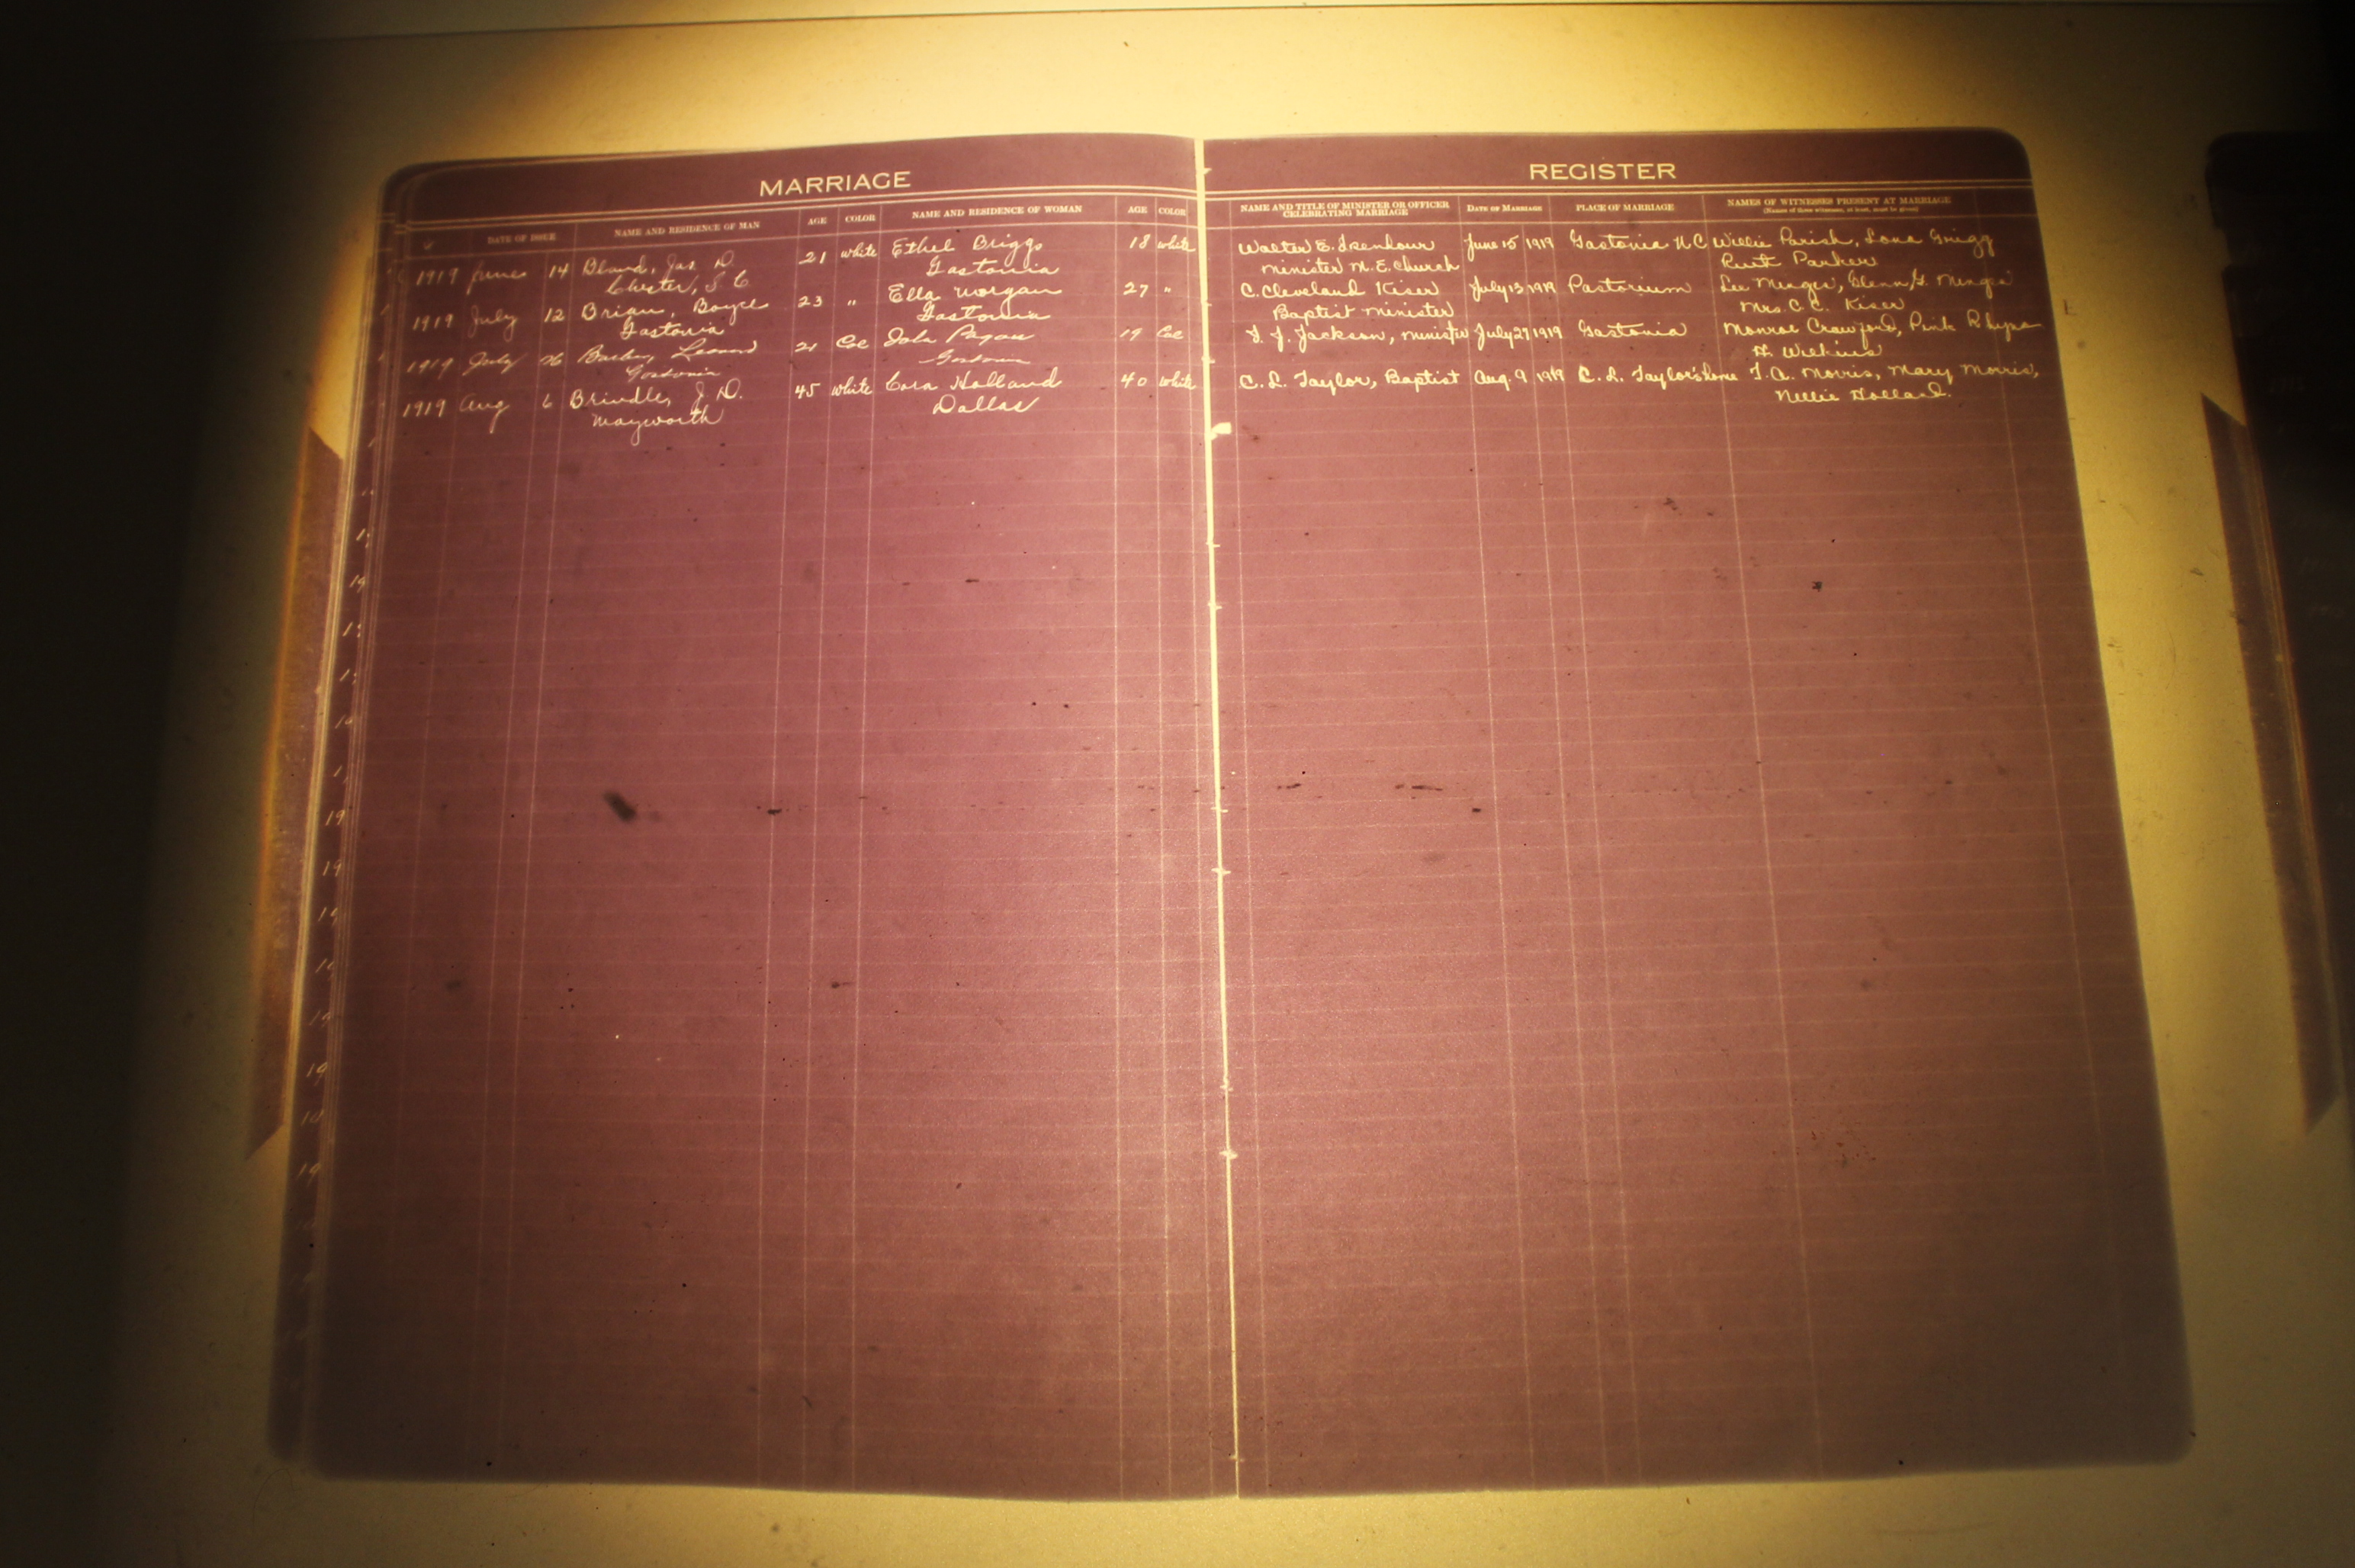 MARRIAGE
REGISTER
DATE OF ISSUE NAME AND RESIDENCE OF MAN AGE COLOR NAME AND RESIDENCE OF WOMAN AGE COLOR
NAME AND TITLE OF MINISTER OR OFFICER CELEBRATING MARRIAGE DATE OF MARRIAGE PLACE OF MARRIAGE NAMES OF WITNESSES PRESENT AT MARRIAGE
(Names of three witnesses, at least, must be given)
1919 June 14 Bland, Jas. D. 21 white Ethel Briggs 18 white Walter E. Isenhour June 15 1919 Gastonia N C Willie Parish, Lona Grigg
Chester, S C Gastonia Minister M. E. Church Ruth Parker
1919 July 12 Brian, Boyce 23 " Ella Morgan 27 " C. Cleveland Kiser July 13 1919 Pastorium Lee Minges, Glenn G. Minges
Gastonia Gastonia Baptist Minister Mrs. C. C. Kiser
1919 July 26 Leonard 21 Col 19 Col J. Jackson, Minister July 27 1919 Gastonia Monroe Crawford, Pink Rhyne
Gastonia Gastonia H. Wilkins
1919 Aug 6 Brindle, J. D. 45 white Cora Holland 40 white C. L. Taylor, Baptist Aug. 9 1919 C. L. Taylor's home T. A. Morris, Mary Morris,
Mayworth Dallas Nellie Holland.